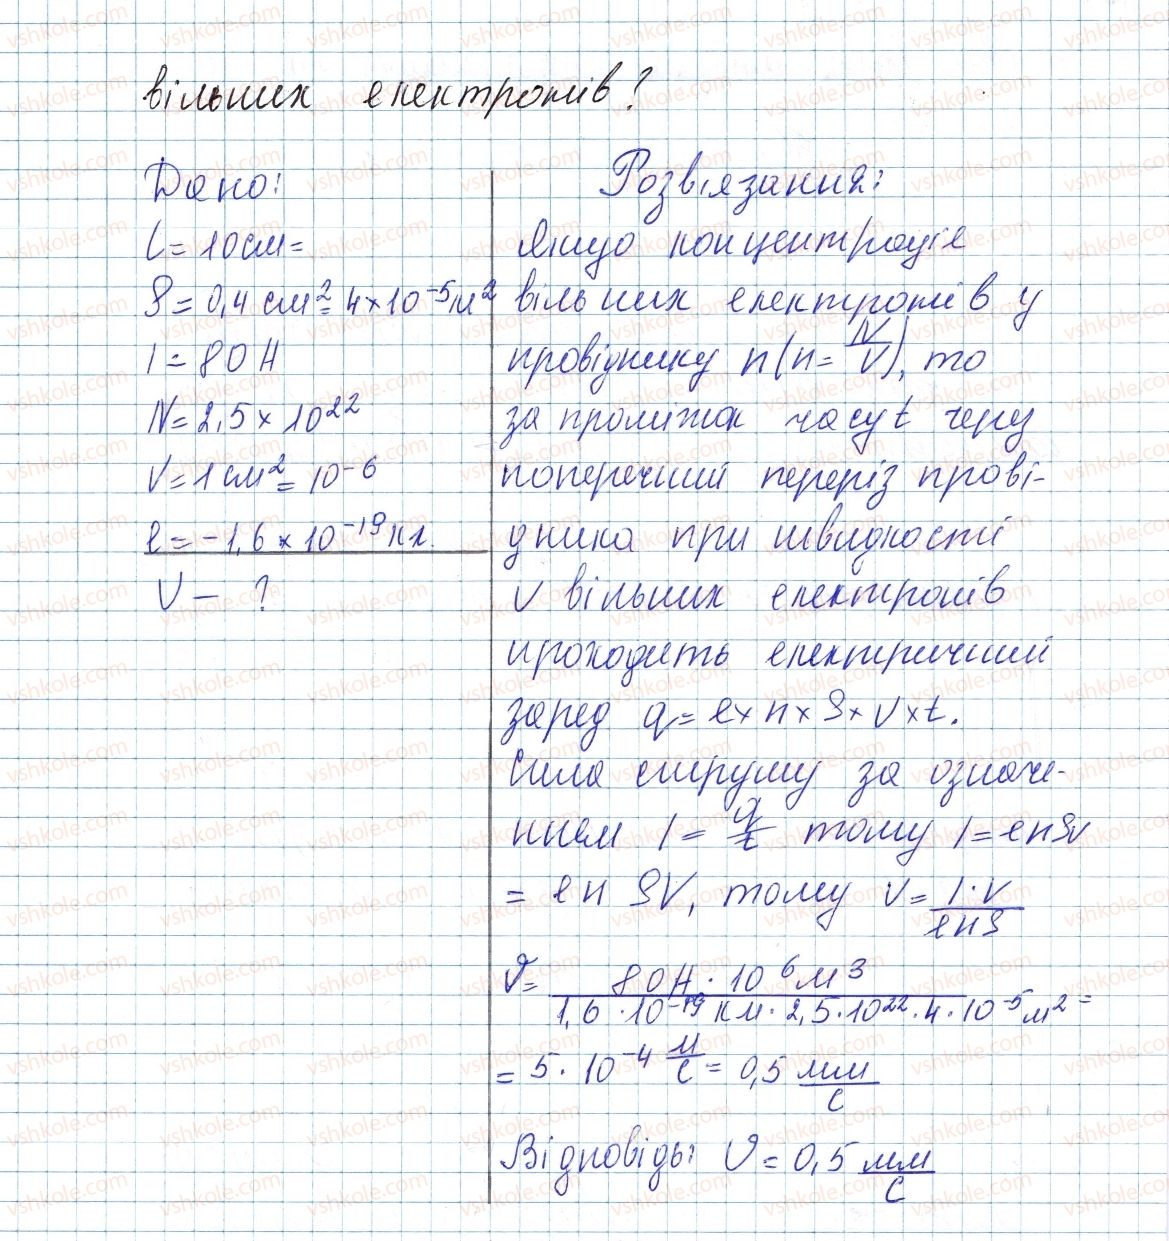 вільних електронів?
Дано:
l = 10 см =
S = 0,4 см² = 4 × 10⁻⁵ м²
I = 80 А
N = 2,5 × 10²²
V = 1 см² = 10⁻⁶
e = -1,6 × 10⁻¹⁹ Кл.
V - ?
Розв'язання:
Якщо концентрація
вільних електронів у
провіднику n (n = N/V), то
за проміжок часу t через
поперечний переріз прові-
дника при швидкості
v вільних електронів
проходить електричний
заряд q = e × n × S × v × t.
Сила струму за означе-
нням I = q/t тому I = enSv
= en SV, тому v = I·V/enS
v = 80А · 10⁶ м³ / 1,6 · 10⁻¹⁹ Кл · 2,5 · 10²² · 4 · 10⁻⁵ м² =
= 5 · 10⁻⁴ м/с = 0,5 мм/с
Відповідь: v = 0,5 мм/с
vshkole.com